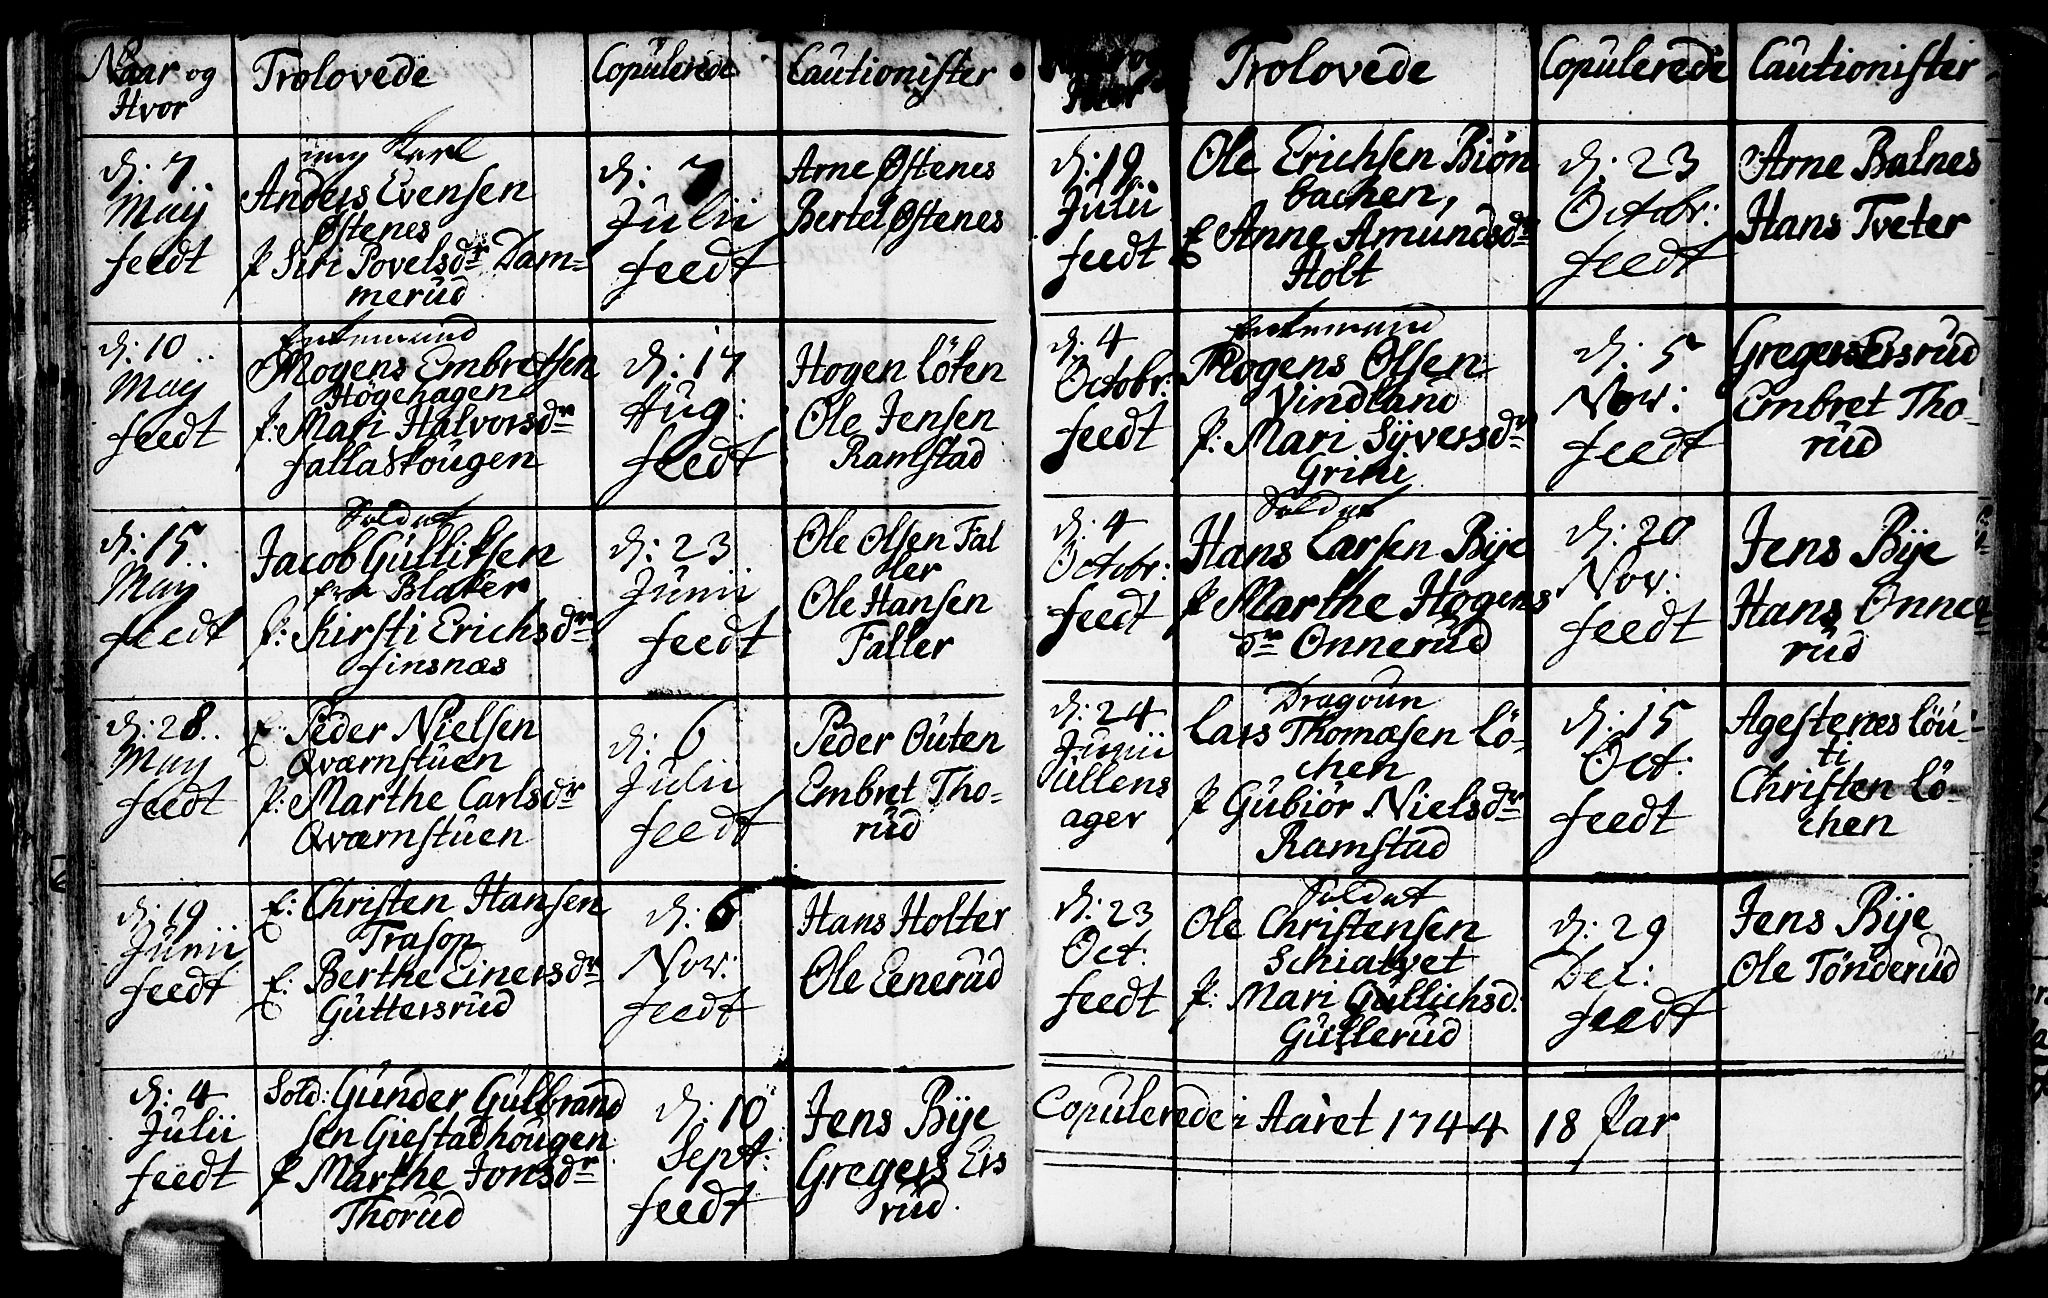 Naar og
Hvor
Trolovede
Copulerede
Cautionister
d: 7
Maÿ
feedt
ung Karl
Anders Evensen
Østenes
P Siri Povelsdr Dam=
merud
d: 7
Julii
feedt
Arne Østenes
Bertel Østenes
d: 10
Maÿ
feedt
Enkemand
Mogens Embretsen
Högehagen
P: Mari Halvorsdr
fallaskougen
d: 17
Aug:
feedt
Hogen Löken
Ole Jensen
Ramstad
d: 15
Maÿ
feedt
Soldat
Jacob Gulliksen
fra Blaker
P: Kirsti Erichsdr
finsnæs
d: 23
Junii
feedt
Ole Olsen Fal
ler
Ole Hansen
Faller
d: 28
Maÿ
feedt
E: Peder Nielsen
Qværnstuen
P: Marthe Carlsdr
Qværnstuen
d: 6
Julii
feedt
Peder Outen
Embret Tho-
rud
d: 19
Junii
feedt
E: Christen Hansen
Trasop
E: Berthe Einersdr
Guttersrud
d: 6
Nov:
feedt
Hans Holter
Ole Eenerud
d: 4
Julii
feedt
Sold: Gunder Gulbrand
sen Giestadhougen
P Marthe Jonsdr
Thorud
d: 10
Sept:
feedt
Jens Bÿe
Gregers Ers
rud.
Hvor
Trolovede
Copulerede
Cautionister
d: 19
Julii
feedt
Ole Erichsen Biøn
bachen,
E Anne Amundsdr
Holt
d: 23
Octobr:
feedt
Arne Balnes
Hans Tveter
d: 4
Octobr:
feedt
Enkemand
Mogens Olsen
Vindland
P: Mari Sÿversdr
Grini
d: 5
Nov:
feedt
Gregers Ersrud
Embret Tho-
rud
d: 4
Octobr:
feedt
Soldat
Hans Larsen Bÿe
P Marthe Hogens
dr Onnerud
d: 20
Nov:
feedt
Jens Bÿe
Hans Onne
rud
d: 24
Junii
Ullens
ager
Dragoun
Lars Thomæsen Lö-
chen
P Gubiör Nielsdr
Ramstad
d: 15
Oct:
feedt
Agestenes Löu-
ti
Christen Lö-
chen
d: 23
Oct:
feedt
Soldat
Ole Christensen
Schiatvet
P: Mari Gullichsd:
Gullerud
d: 29
Dec:
feedt
Jens Bÿe
Ole Tönderud
Copulerede i Aaret 1744 18 Par